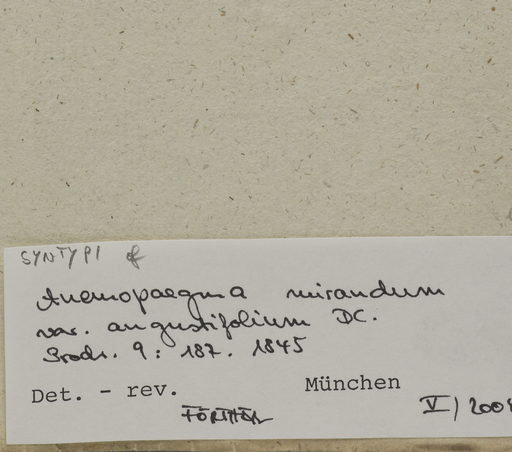 SYNTYPI of
Anemopaegma mirandum
var. angustifolium DC.
Prodr. 9: 187. 1845
Det. - rev. München
FÖRTHER V/